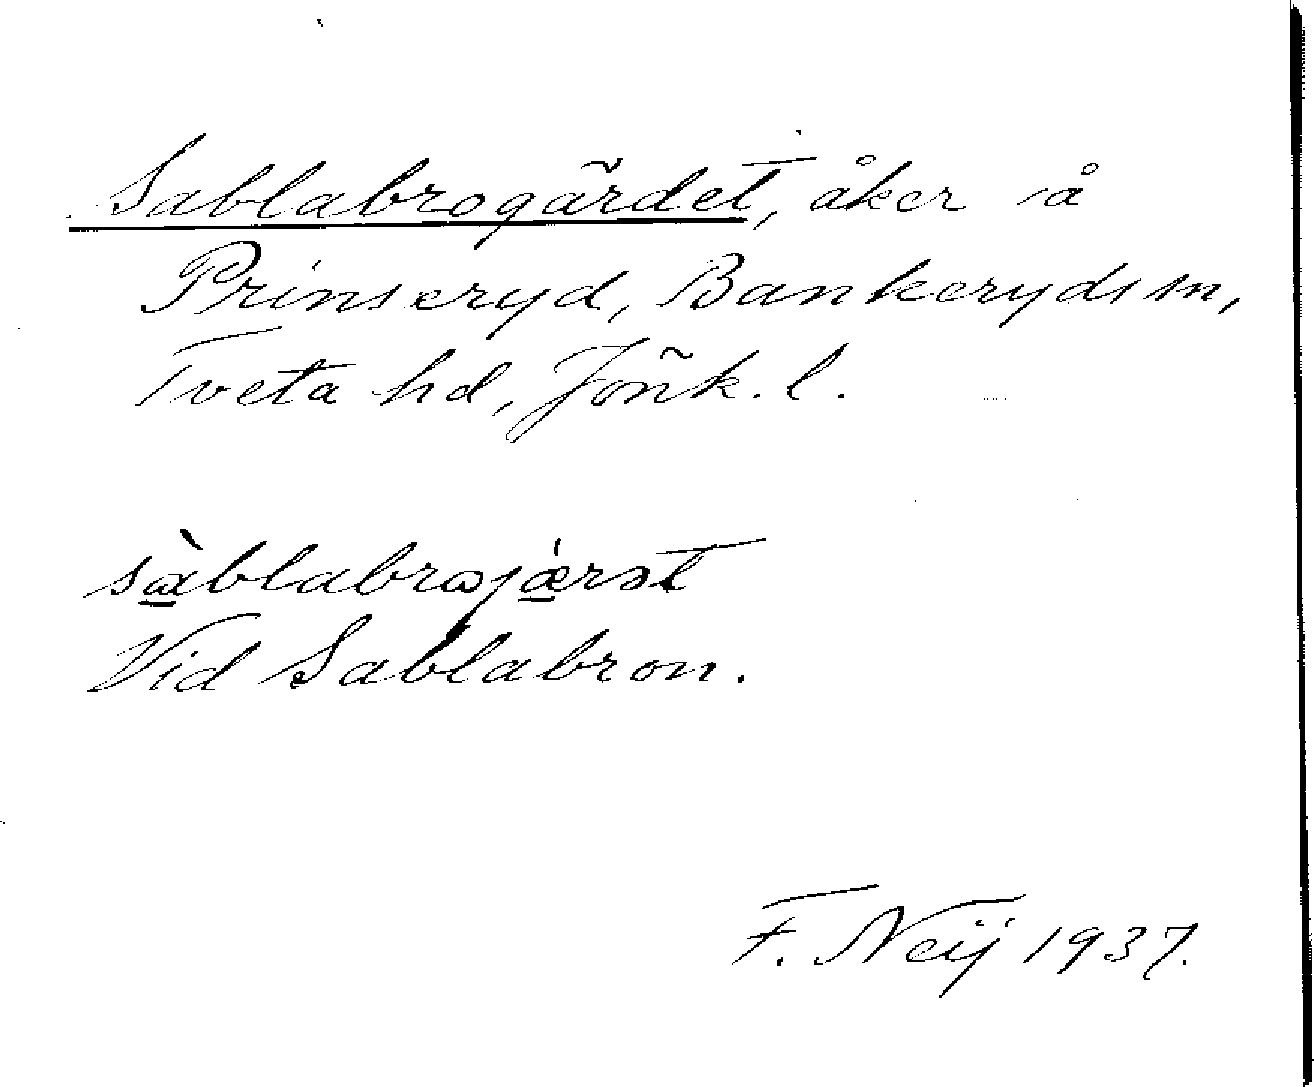 Sablabrogärdet, åker å
Prinseryd, Bankeryds sn,
Tveta hd, Jönk. l.
sàblabrωjǽrət
Vid Sablabron.
F. Neij 1937.